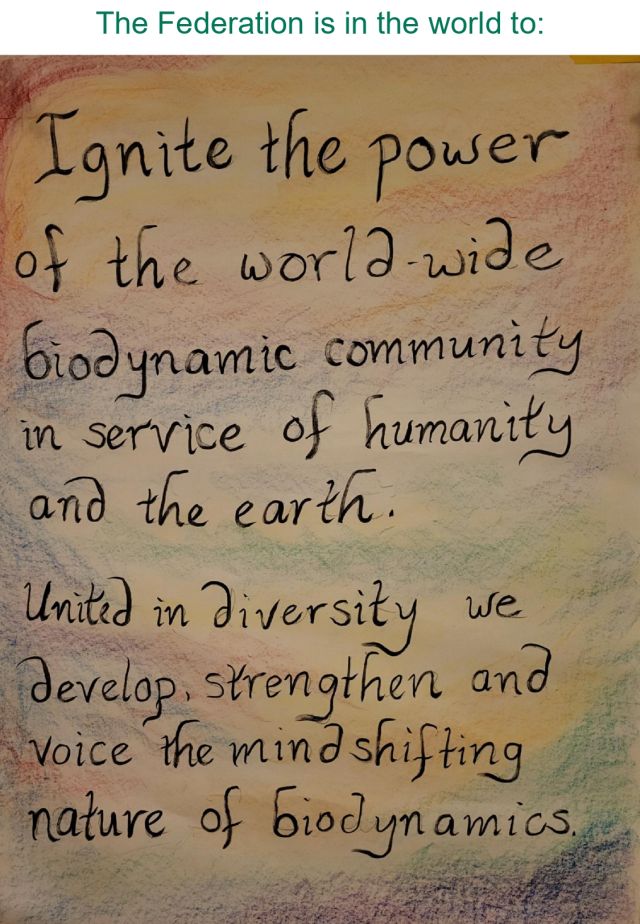 The Federation is in the world to:
Ignite the power
of the world-wide
biodynamic community
in service of humanity
and the earth.
United in diversity we
develop, strengthen and
voice the mindshifting
nature of biodynamics.